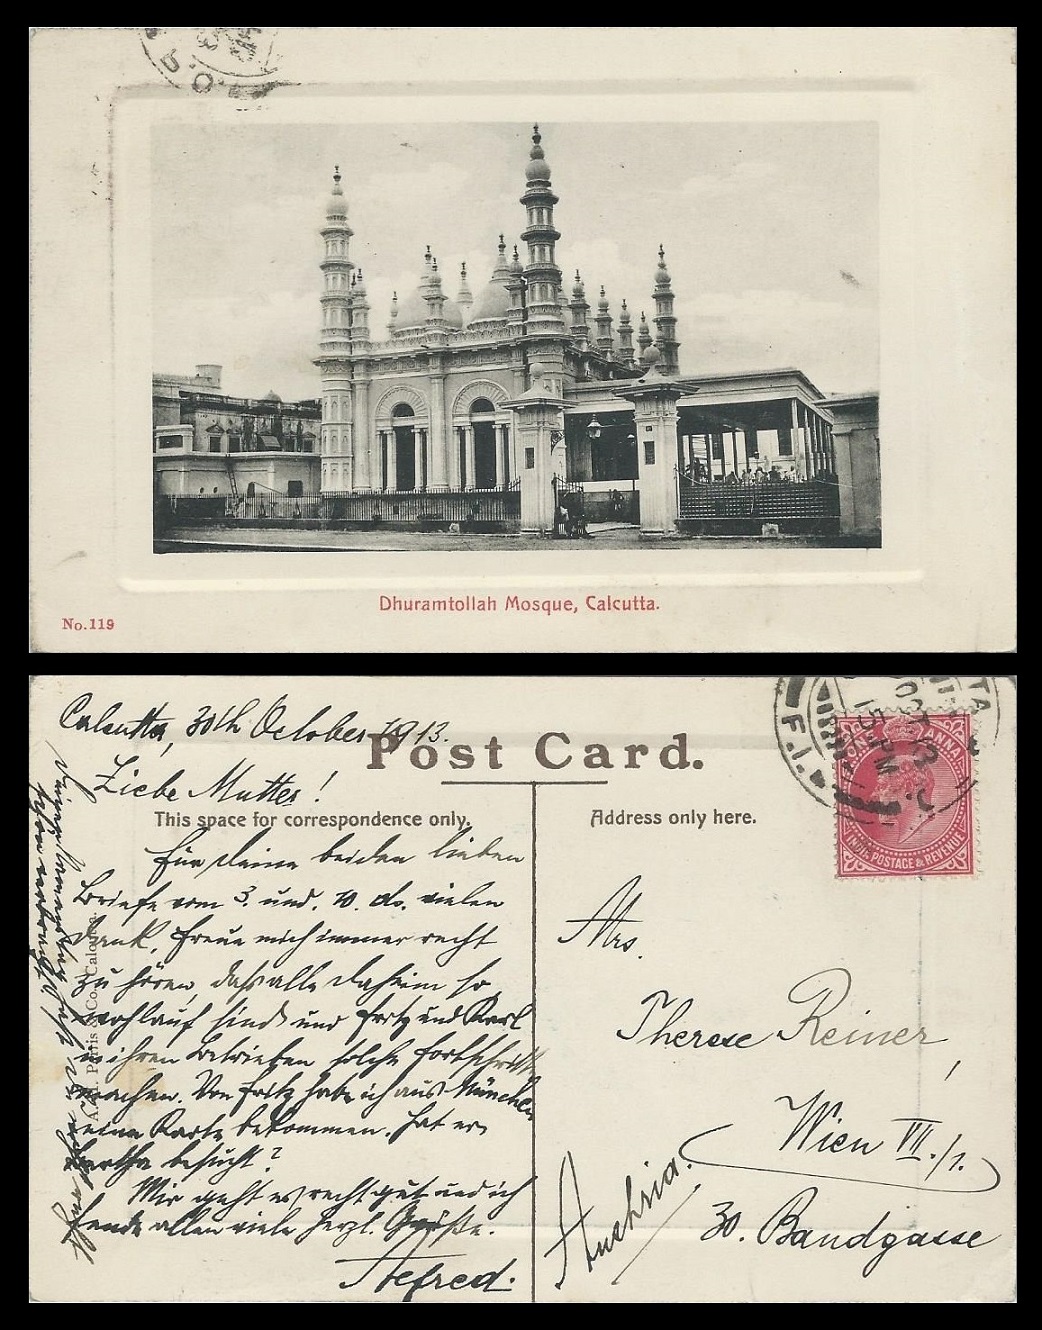 P.O.
Dhuramtollah Mosque, Calcutta.
No.119
Calcutta, 30th October 1913.
Post Card.
Liebe Mutter!
This space for correspondence only.
Address only here.
Für Deine beiden lieben
Briefe vom 3. und. 10. ds. vielen
Dank, freue mich immer recht
zu hören, daß alle daheim so
wohlauf sind und Fritz und Karl
in ihren Betrieben solche Fortschritte
machen. Von Fritz habe ich aus München
eine Karte bekommen. Hat er
Bertha besucht?
Mir geht es recht gut und ich
sende allen viele herzl. Grüße.
Alfred.
Calcutta
OCT. 13
15 PM
F.I.
ONE ANNA
INDIA POSTAGE & REVENUE
Mrs.
Therese Reiner
Wien VII./1.
30. Bandgasse
Austria.